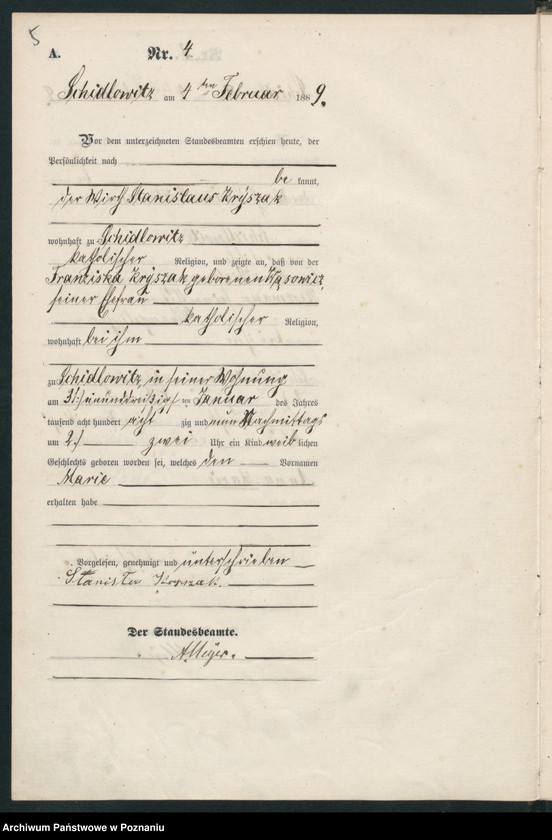 5
A. Nr. 4
Schidlowitz am 4 ten Februar 1889.
Vor dem unterzeichneten Standesbeamten erschien heute, der
Persönlichkeit nach
bekannt,
der Wirth Stanislaus Kryszak
wohnhaft zu Schidlowitz
katholischer Religion, und zeigte an, daß von der
Franziska Kryszak geborenen Wąsowicz,
seiner Ehefrau
katholischer Religion,
wohnhaft bei ihm
zu Schidlowitz, in seiner Wohnung
am 31/einunddreißig/ten Januar des Jahres
tausend acht hundert achtzig und neun Nachmittags
um 2/ zwei Uhr ein Kind weiblichen
Geschlechts geboren worden sei, welches den Vornamen
Marie
erhalten habe
Vorgelesen, genehmigt und unterschrieben
Der Standesbeamte.
AMeyer.
Archiwum Państwowe w Poznaniu